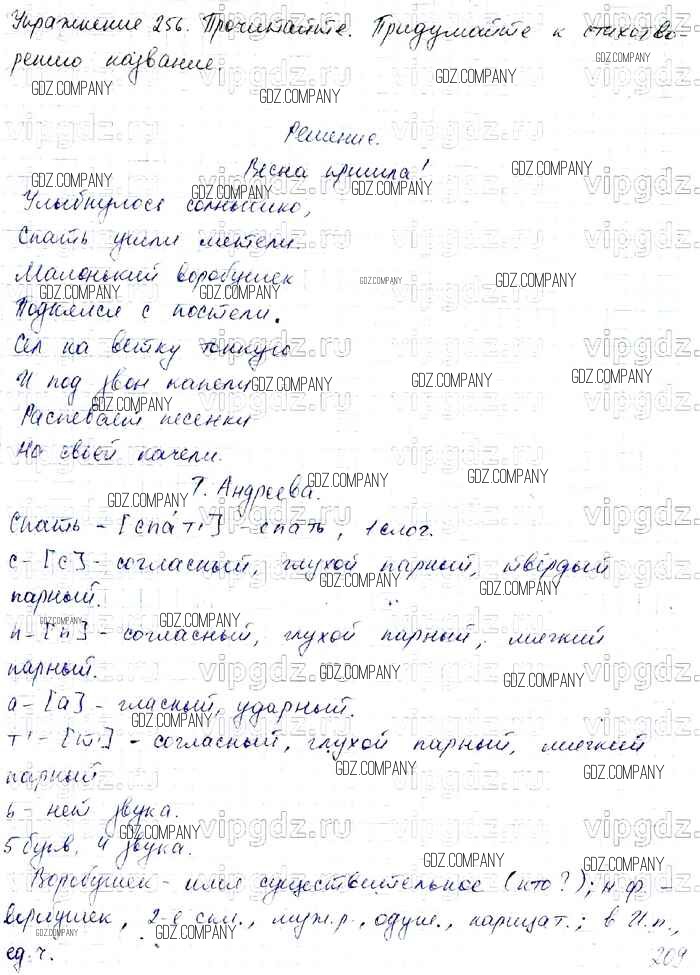 Упражнение 256. Прочитайте. Придумайте к стихотво-
рению название.
Решение.
Весна пришла!
Улыбнулось солнышко,
Спать ушли метели.
Маленький воробушек
Поднялся с постели.
Сел на ветку тонкую
И под звон капели
Распевает песенки
На своей качели.
Т. Андреева.
Спать - [спа́т'] - спать, 1 слог.
с - [с] - согласный, глухой парный, твёрдый
парный.
п - [п] - согласный, глухой парный, мягкий
парный.
а - [а] - гласный, ударный.
т' - [т'] - согласный, глухой парный, мягкий
парный
ь - нет звука.
5 букв, 4 звука.
Воробушек - имя существительное (кто?); н.ф. -
воробушек, 2-е скл., муж.р., одуш., нарицат.; в И.п.,
ед.ч.
209
GDZ.COMPANY
vipgdz.ru